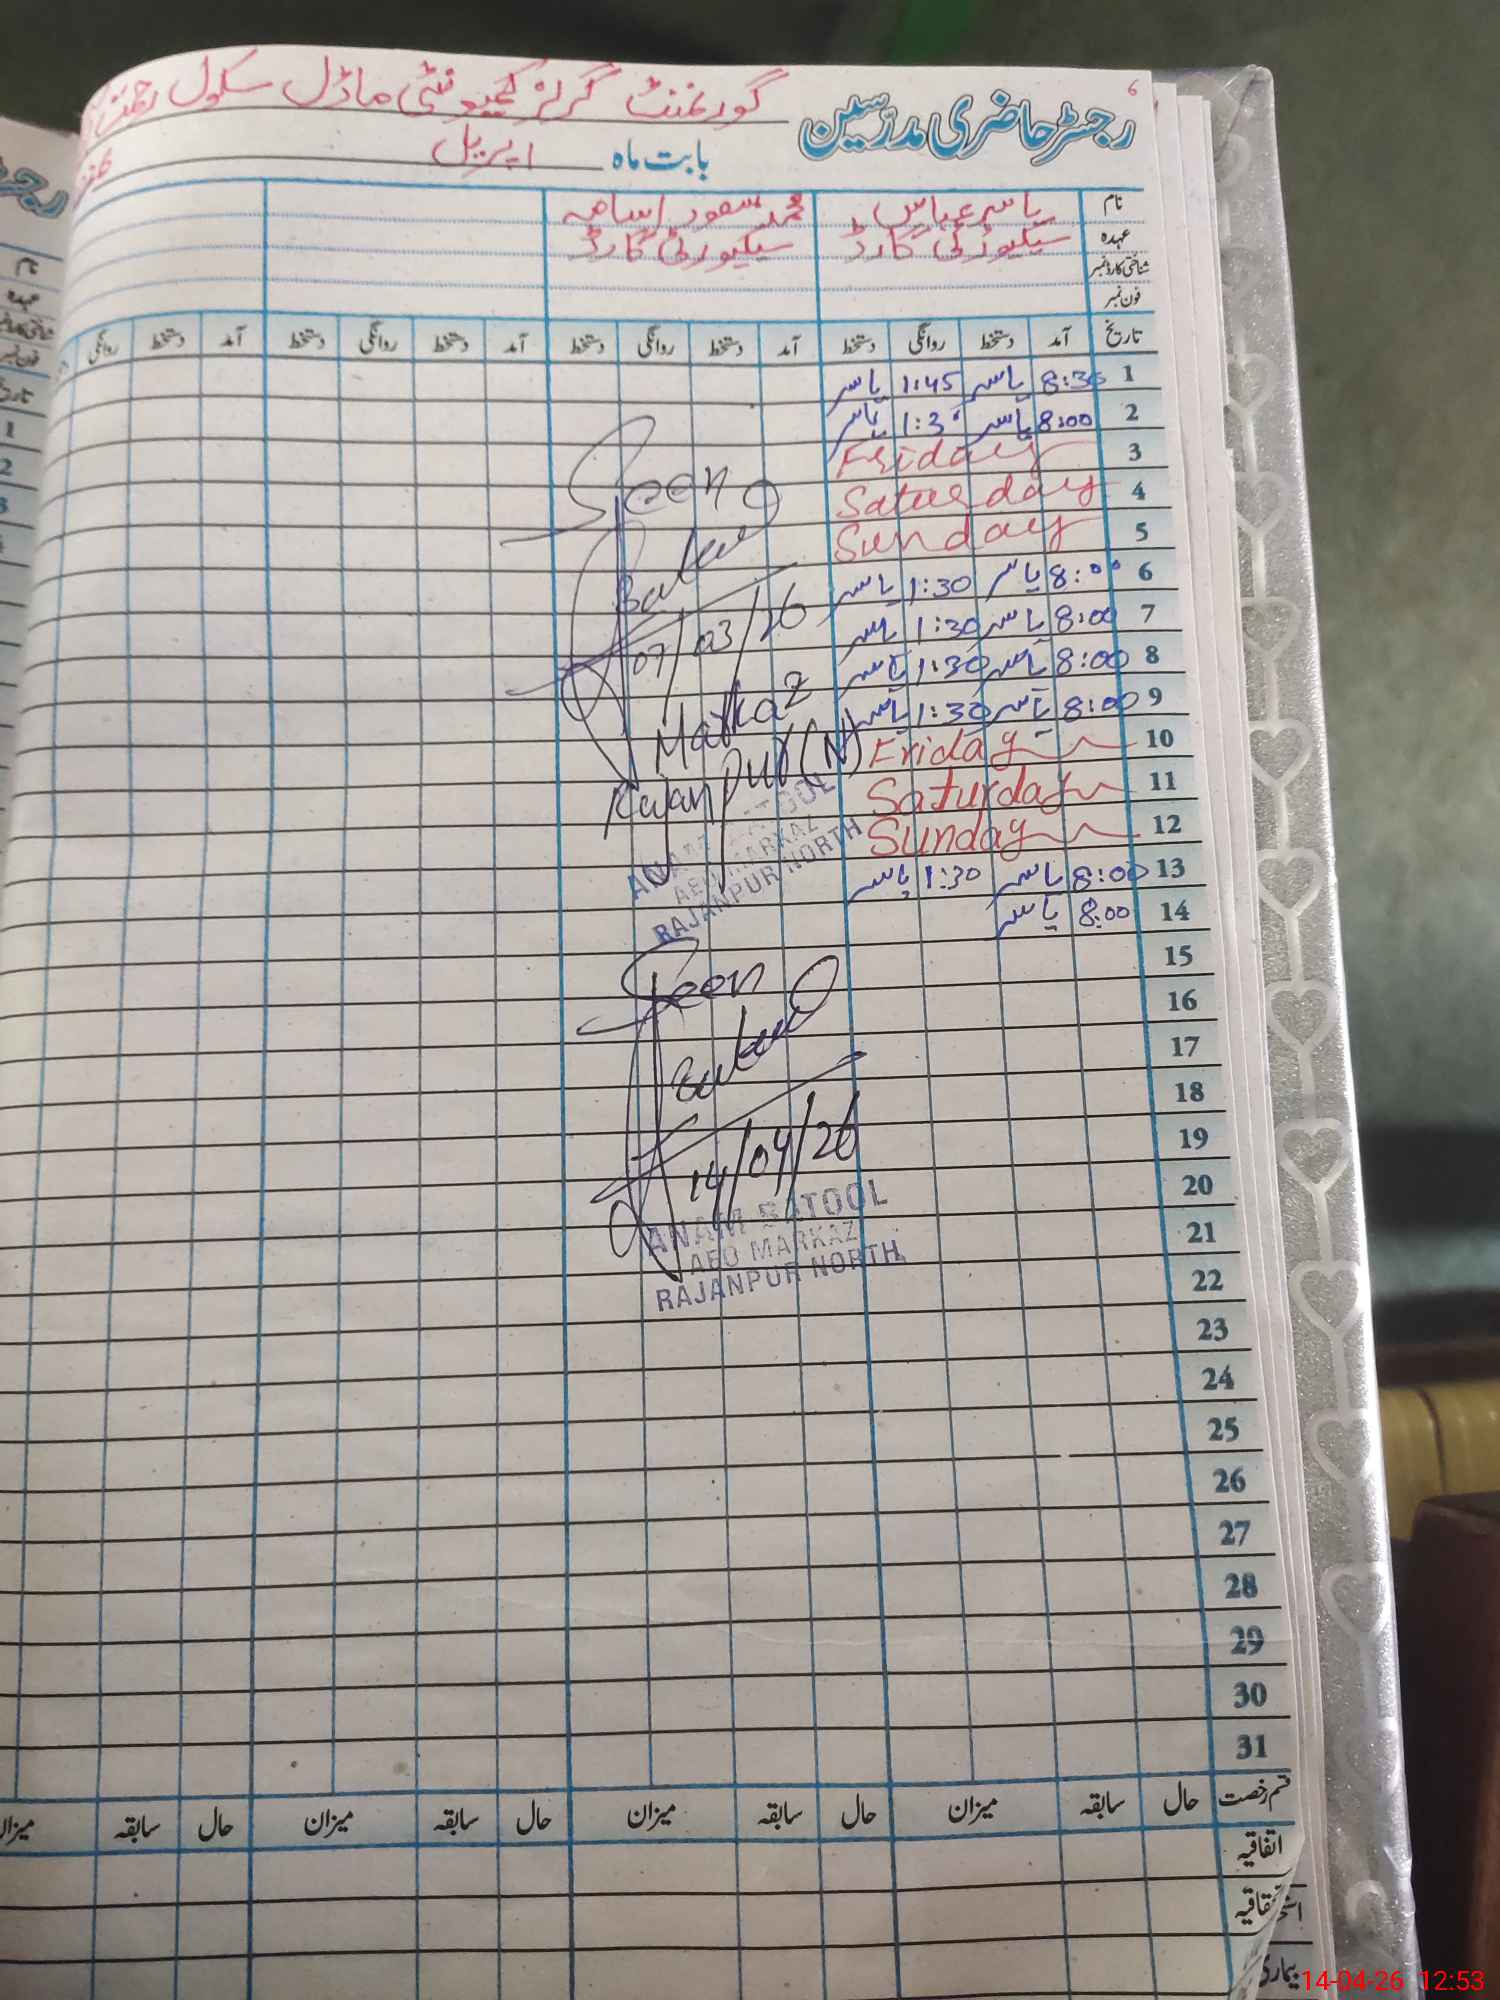 رجسٹر حاضری مدرسین گورنمنٹ گرلز کمیونٹی ماڈل سکول
6
بابت ماہ اپریل
نام یاسر عباس محمد سعود اسامہ
عہدہ سیکیورٹی گارڈ سیکیورٹی گارڈ
شناختی کارڈ نمبر
فون نمبر
تاریخ آمد دستخط روانگی دستخط آمد دستخط روانگی دستخط آمد دستخط روانگی دستخط آمد دستخط روانگی
1 8:30 یاسر 1:45 یاسر
2 8:00 یاسر 1:30 یاسر
3 Friday
4 Saturday
5 Sunday
6 8:00 یاسر 1:30 یاسر
7 8:00 یاسر 1:30 یاسر
8 8:00 یاسر 1:30 یاسر
9 8:00 یاسر 1:30 یاسر
10 Friday
11 Saturday
12 Sunday
13 8:00 یاسر 1:30 یاسر
14 8:00 یاسر
15
16
17
18
19
20
21
22
23
24
25
26
27
28
29
30
31
Seen
07/03/26
Markaz
Rajanpur (N)
ANAM BATOOL
AEO MARKAZ
RAJANPUR NORTH
Seen
14/04/26
ANAM BATOOL
AEO MARKAZ
RAJANPUR NORTH
قسم رخصت حال سابقہ میزان حال سابقہ میزان حال سابقہ میزان حال سابقہ میزان
اتفاقیہ
بیماری
14-04-26 12:53